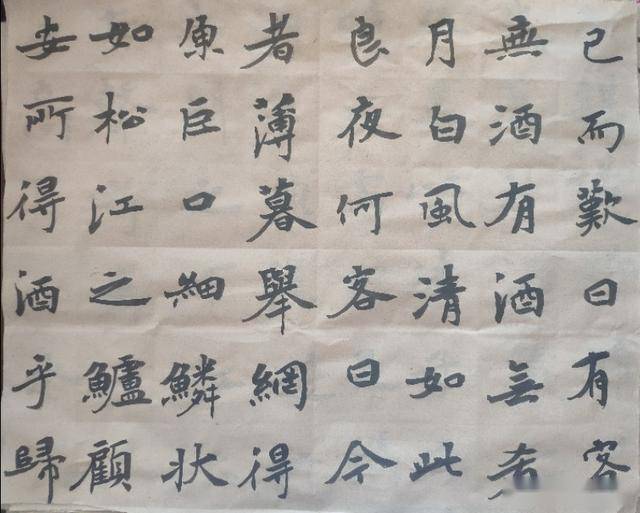 已而歎曰有客
無酒有酒無肴
月白風清如此
良夜何客曰今
者薄暮舉網得
原巨口細鱗狀
如松江之鱸顧
安所得酒乎歸